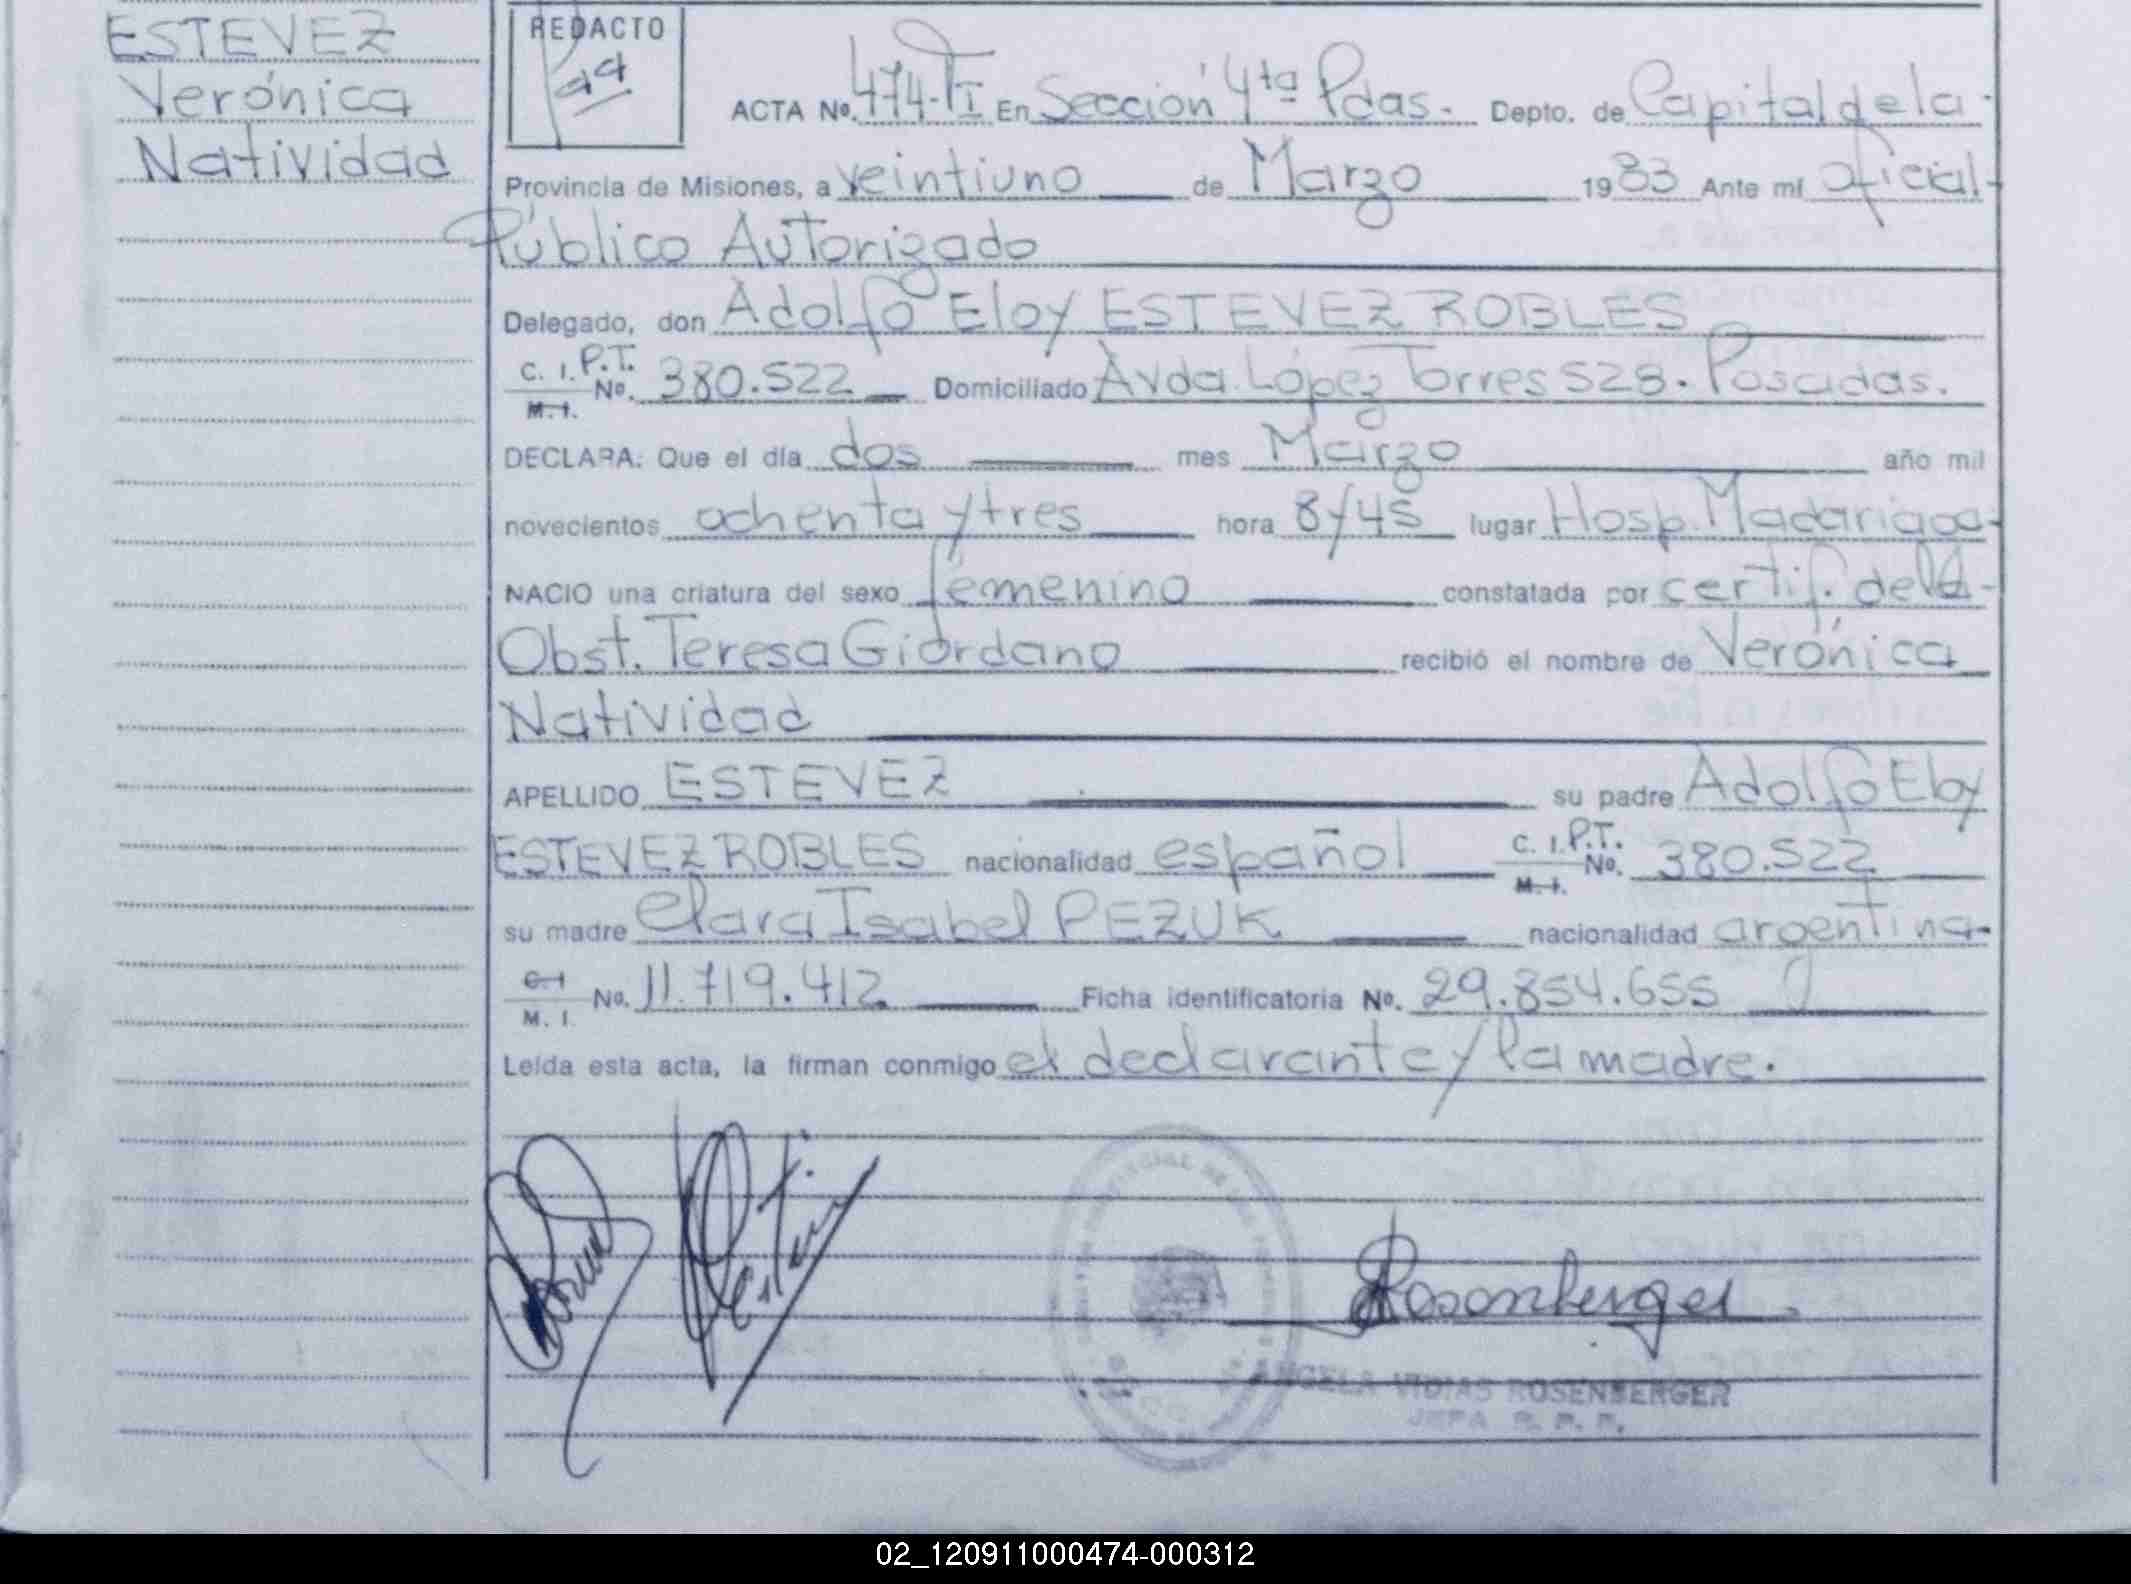 ESTEVEZ
Verónica
Natividad
REDACTO
ACTA Nº. 474-TI En Sección 4ta Pdas. Depto. de Capital de la
Provincia de Misiones, a veintiuno de Marzo 1983 Ante mí oficial
Público Autorizado
Delegado, don Adolfo Eloy ESTEVEZ ROBLES
C. I. P.T.
M. I. Nº. 380.522 Domiciliado Avda. López Torres 528. Posadas.
DECLARA: Que el día dos mes Marzo año mil
novecientos ochenta y tres hora 8y45 lugar Hosp. Madariaga
NACIO una criatura del sexo femenino constatada por certif. de la
Obst. Teresa Giordano recibió el nombre de Verónica
Natividad
APELLIDO ESTEVEZ su padre Adolfo Eloy
ESTEVEZ ROBLES nacionalidad español C. I. P.T. M. I. Nº. 380.522
su madre Clara Isabel PEZUK nacionalidad argentina
C. I. M. I. Nº. 11.719.412 Ficha identificatoria Nº. 29.854.655
Leída esta acta, la firman conmigo el declarante y la madre.
Rosenberger
ANGELA VIDIAS ROSENBERGER
JEFA R. P. P.
02_120911000474-000312